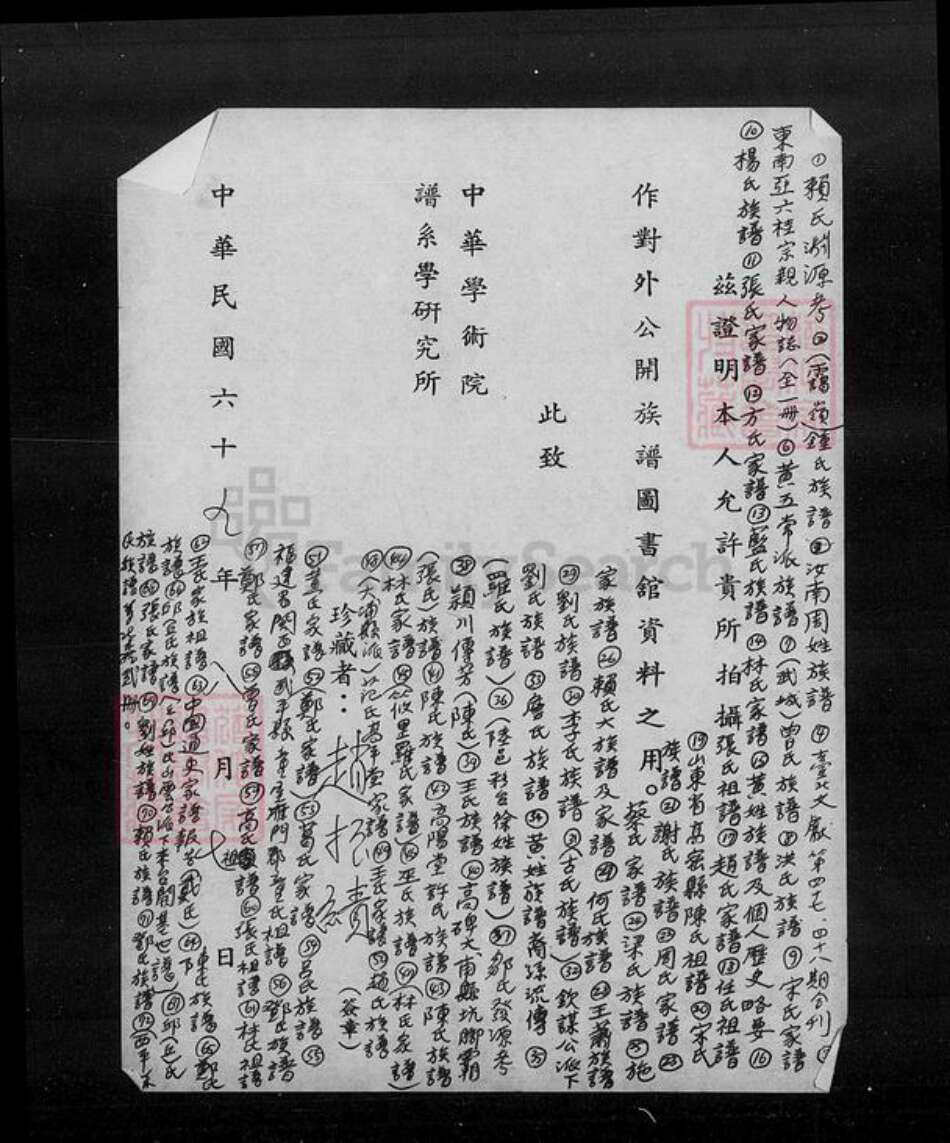 ①賴氏淵源考②(霭嶺)鍾氏族譜③汝南周姓族譜④臺北文獻第四七、四十八期合刊⑤
東南亞六桂宗親人物誌(全一册)⑥黃五常派族譜⑦(武城)曾氏族譜⑧洪氏族譜⑨宋氏家譜
⑩楊氏族譜⑪張氏家譜⑫方氏家譜⑬藍氏族譜⑭林氏家譜⑮黃姓族譜及個人歷史略要⑯
茲證明本人允許貴所拍攝張氏祖譜⑰趙氏家譜⑱任氏祖譜
⑲山東省高密縣陳氏祖譜⑳宋氏
族譜㉑謝氏族譜㉒周氏家譜㉓
作對外公開族譜圖書館資料之用。蔡氏家譜㉔梁氏族譜㉕施
家族譜㉖賴氏大族譜及家譜㉗何氏族譜㉘王蕭族譜
此致
㉙劉氏族譜㉚李氏族譜㉛(古氏族譜)㉜欽謀公派下
劉氏族譜㉝詹氏族譜㉞黃姓族譜裔孫流傳㉟
羅氏族譜㊱(陸邑彩台徐姓族譜)㊲鄒氏發源考
中華學術院
㊳潁川傳芳(陳氏)㊴王氏族譜㊵高碑大甫縣坑腳霸
譜系學研究所
(張氏)族譜㊶陳氏族譜㊷高陽堂許氏族譜㊸陳氏族譜
㊹林氏家譜㊺筱里羅氏家譜㊻巫氏族譜㊼(林氏家譜)
㊽(大埔縣派)范氏高平堂家譜㊾王氏家譜㊿趙氏族譜
珍藏者：趙振績(簽章)
51董氏家譜52(鄭氏家譜)53葛氏家譜54呂氏族譜55
福建省閩西武平縣童隹雁門郡童氏祖譜56鄧氏族譜
57鄭氏家譜58曾氏家譜59高氏族譜60張氏祖譜61林氏祖譜
中華民國六十九年八月七日
62王氏家族祖譜63中國通史家譜報告(戴氏)64下
陳氏族譜65鄭氏
族譜66邱(丘)氏族譜(丘邱)氏山雲公派下來台開基世譜67邱(丘)氏
族譜68張氏家譜69劉姓族譜70賴氏族譜71鄧氏族譜72西平宋
氏族譜等柒拾貳册。